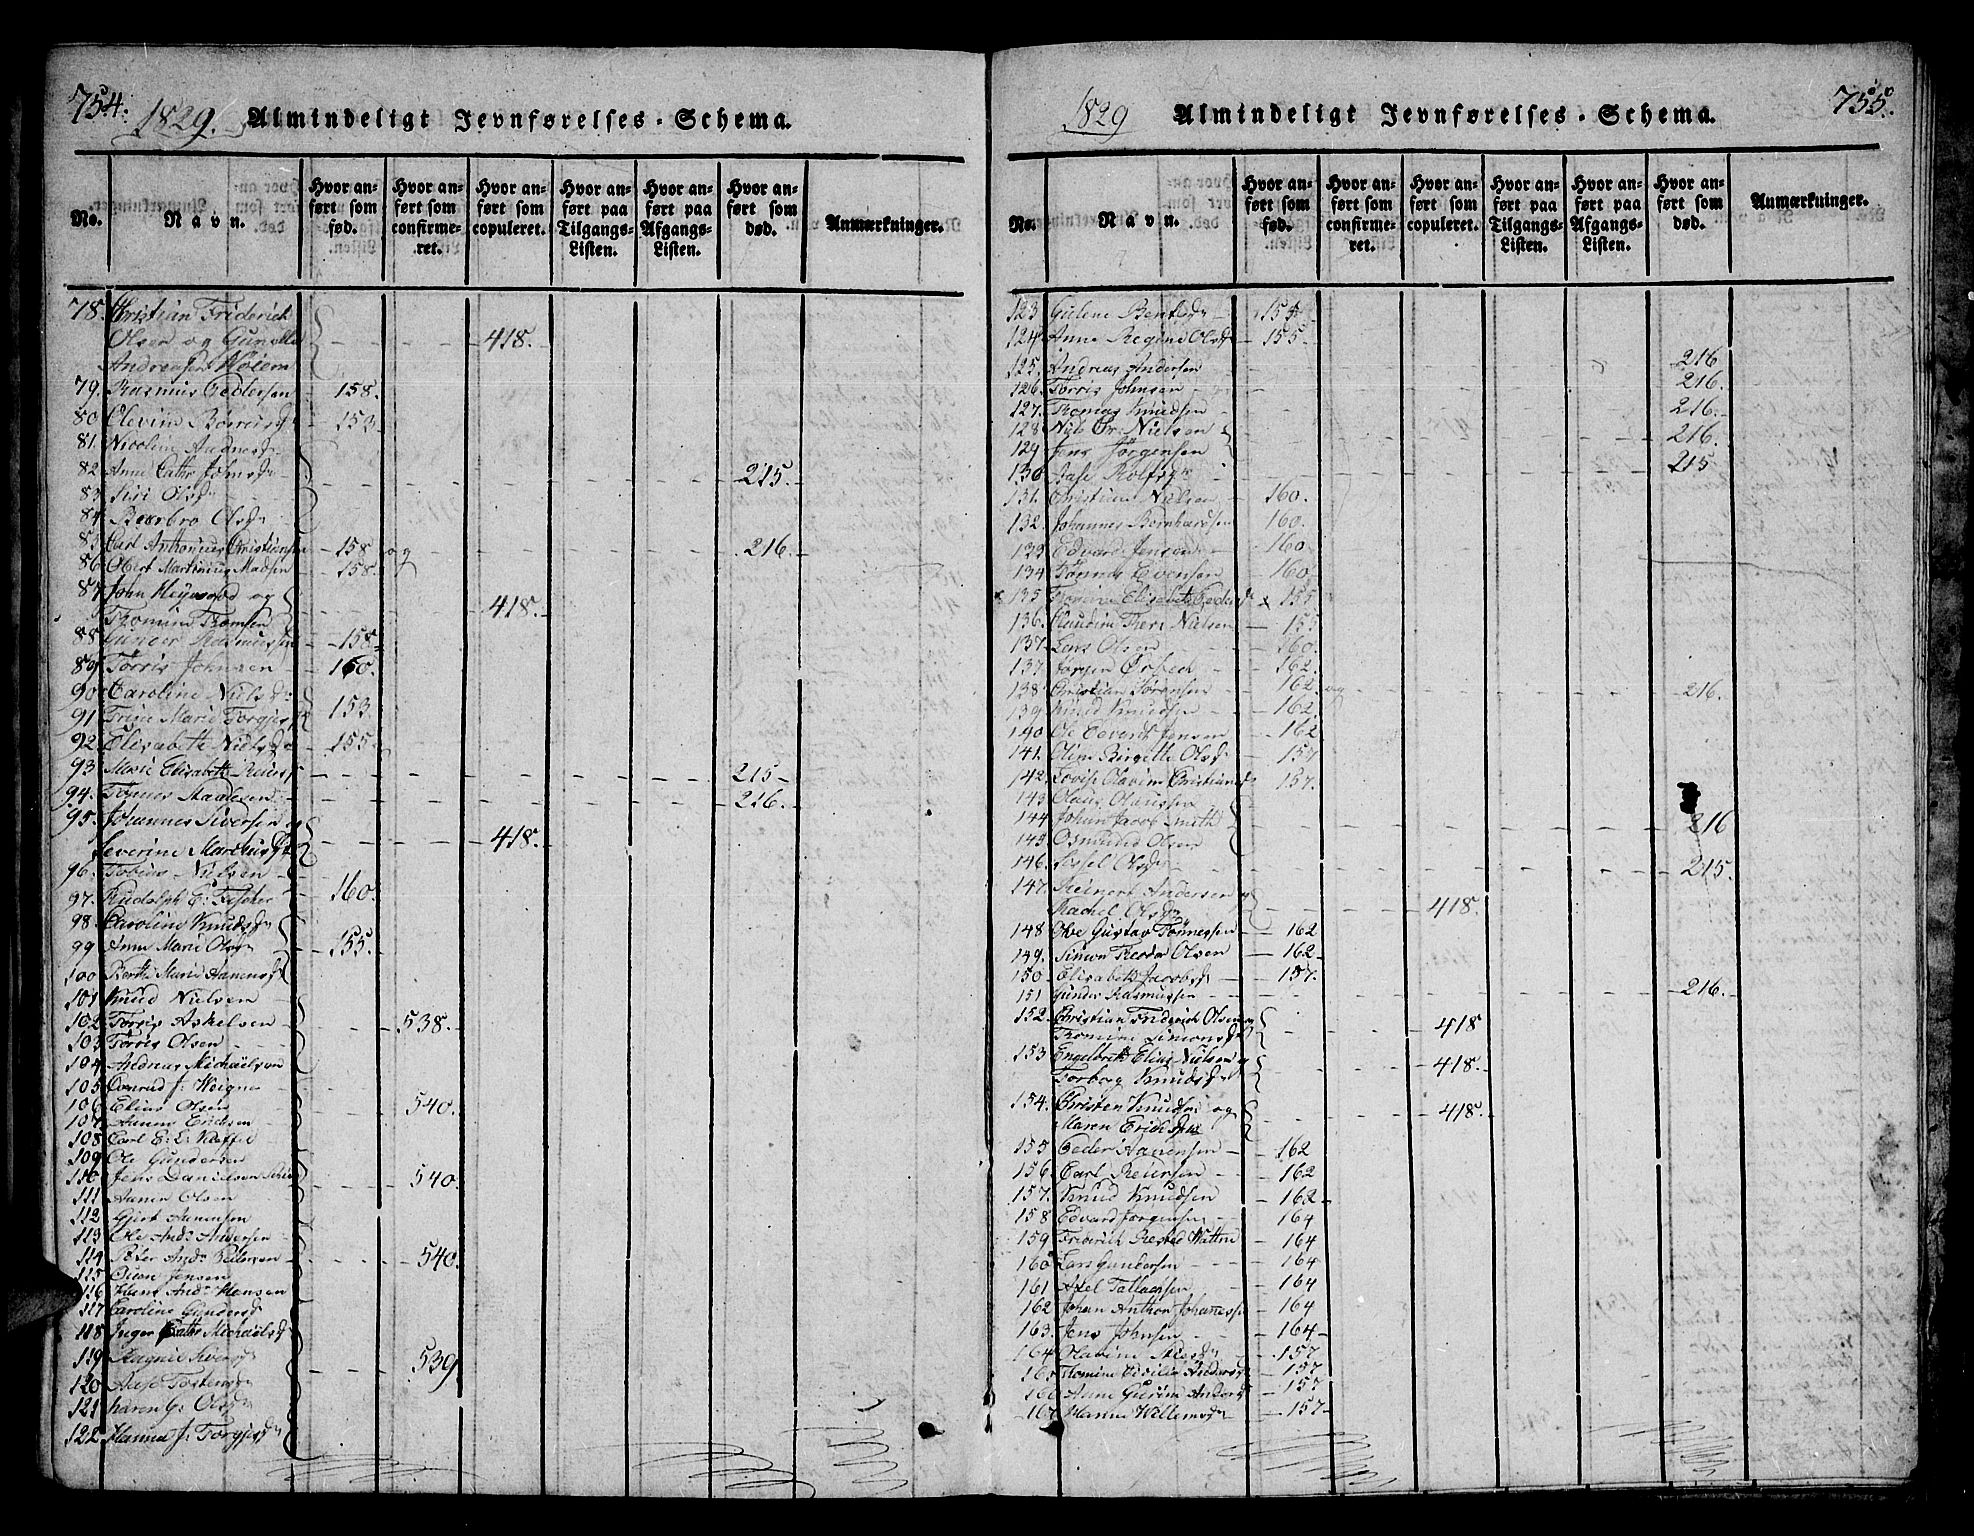 754.
1829. Almindeligt Jevnførelses-Schema.
No. | Navn. | Hvor anført som fød. | Hvor anført som confirmeret. | Hvor anført som copuleret. | Hvor anført paa Tilgangs-Listen. | Hvor anført paa Afgangs-Listen. | Hvor anført som død. | Anmærkninger.
78. Christian Friderich
Olsen og Gunelle 418.
Andreasen
79. Rasmus Pedersen 158.
80 Olevine 153.
81. Nicoline
82. Anne Cathr Johnsd
83. Siri Olsd 215.
84. Barbro Olsd
85 Carl Anthonius Christiansen 158 og 216.
86. Obert Martinius Madsen 158.
87. John Heywood og
Thomine Thomsen 418.
88. Gunder Rasmussen 158.
89. Torris Johnsen 160.
90. Caroline Nielsd
91 Trine Marie Torgjersd 153.
92. Elisabeth Nielsd 155.
93 Marie Elisabeth Reiersd 215
94. Tønnes Aadnesen 216.
95. Johannes Siversen og
Severine Marcusd 418.
96. Tobias Nielsen
97. Rudolph E: Fischer 160.
98. Caroline Knudsd
99. Anne Marie Olsd 155.
100 Berthe Marie Aanensd
101 Knud Nielsen
102. Torris Askelsen 538.
103. Torris Olsen
104. Andreas Michaelsen
105. Conrad J: Weigner
106. Elias Olsen 540.
107. Aanen Ericksen
108. Carl E: L: Kaffel
109 Ole Gundersen
110 Jens Danielsen 540.
111. Aanen Olsen
112 Gjert Aanensen
113 Ole And: Andersen
114 Peter And: Pedersen 540.
115 Jensen
116 Hans And: Hansen
117 Caroline Gundersd
118 Inger Cathr Michaelsd
119 Ragnil Siversd 539
120 Aase Torstensd
121 Karen G: Olsd
122. Hanna J: Torgjersd
755.
1829 Almindeligt Jevnførelses-Schema.
No. | Navn. | Hvor anført som fød. | Hvor anført som confirmeret. | Hvor anført som copuleret. | Hvor anført paa Tilgangs-Listen. | Hvor anført paa Afgangs-Listen. | Hvor anført som død. | Anmærkninger.
123 Gulene Bentsd 155
124 Anne Regine Olsd 155.
125. Andreas Andersen 216
126. Torris Johnsen 216.
127. Thomas Knudsen 216.
128 Niels Chr: Nielsen 216.
129 Jens Jørgensen
130 Aase Rolfsd 215
131. Christian Nielsen 160.
132. Johannes Bernhardsen 160.
133 Edvard Jensen 160
134 Tønnes Evensen 160
135 Tomine Elisabeth Pedersd x 155
136. Claudine There Nielsen 155
137. Lars Olsen 160.
137 Jørgen 162.
138 Christian Sørensen 162 og 216.
139 Knud Knudsen 162
140 Ole Edvard Jensen 162
141. Oline Birgitte Olsd 157
142. Lovise Olavine Christiansd 157.
143 Olaus Olaussen
144 Johan Jacob Smith 216
145 Osmund Olsen
146. Sissel Olsd 215.
147. Reinert Andersen og
Rachel Olsd 418.
148 Ove Gustav Tønnessen 162
149. Simon Theodor Olsen 162.
150 Elisabeth Jacobsd 157.
151 Gunder Rasmussen 216.
152. Christian Friderich Olsen og 418
Thomine Simonsd
153 Engelbreth Elias Nielsen og
Torborg Knudsd 418.
154. Christen Knudsen og 418.
Maren Erichsen
155 Peder Aanensen 162
156. Carl Reiersen 162
157. Knud Knudsen 162
158 Edvard Jørgensen 164
159 Friderich Rested Wattne 164
160 Lars Gundersen 164
161 Axel Tallachsen 164
162 Johan Anthon Johannessen 164
163. Jens Johnsen 164
164 Olavine 157
165 Thomine Cecilie Pedersd 157
166 Anne Gurine Andersd 157
167 Hanne Willemsd 157